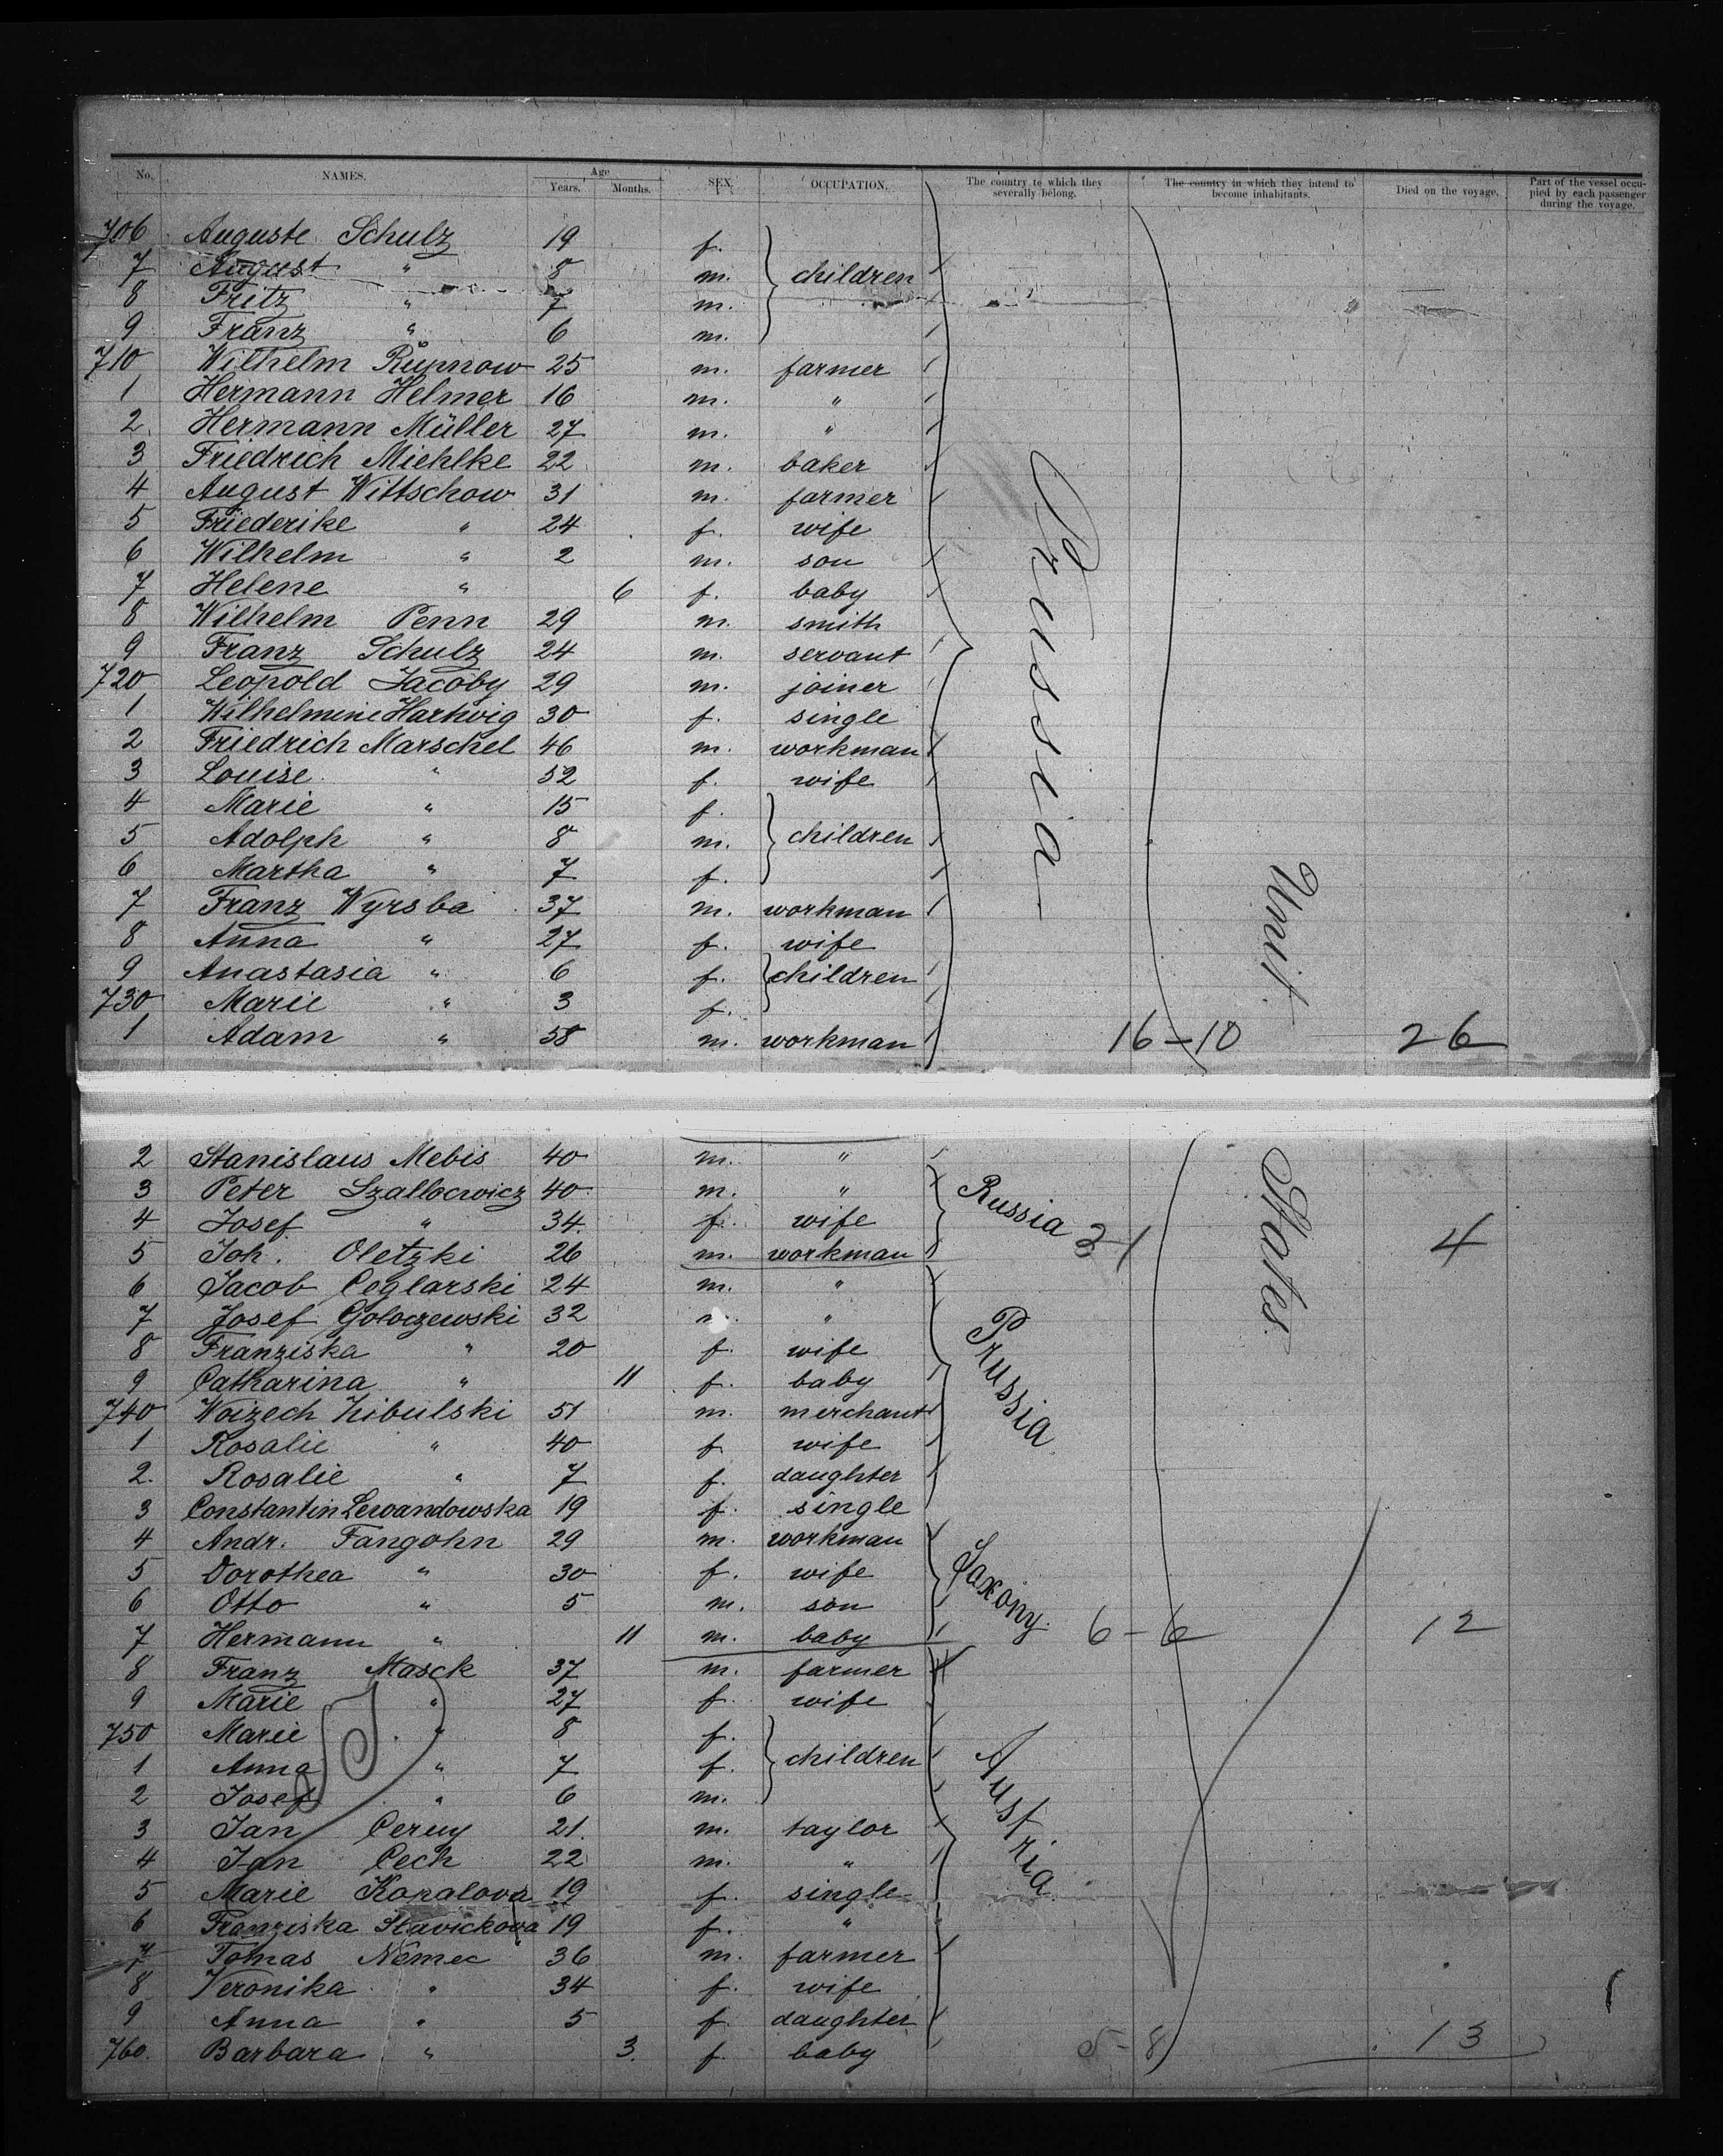 No. NAMES. Age Years. Months. SEX. OCCUPATION. The country to which they severally belong. The country in which they intend to become inhabitants. Died on the voyage. Part of the vessel occupied by each passenger during the voyage.
706 Auguste Schulz 19 f.
7 August " 8 m. children
8 Fritz " 7 m.
9 Franz " 6 m.
710 Wilhelm Rumnow 25 m. farmer
1 Hermann Helmer 16 m. "
2 Hermann Müller 27 m. "
3 Friedrich Miehlke 22 m. baker
4 August Wittschow 31 m. farmer
5 Friederike " 24 f. wife
6 Wilhelm " 2 m. son
7 Helene " 6 f. baby
8 Wilhelm Penn 29 m. smith
9 Franz Schulz 24 m. servant
720 Leopold Jacoby 29 m. joiner
1 Wilhelmine Hartwig 30 f. single
2 Friedrich Marschel 46 m. workman
3 Louise " 52 f. wife
4 Marie " 15 f.
5 Adolph " 8 m. children
6 Martha " 7 f.
7 Franz Wyrsba 37 m. workman
8 Anna " 27 f. wife
9 Anastasia " 6 f. children
730 Marie " 3 f.
1 Adam " 58 m. workman 16-10 26
Prussia
Unit.
2 Stanislaus Mebis 40 m. "
3 Peter Szallocwicz 40 m. " Russia
4 Josef " 34 f. wife 3-1 4
5 Joh. Oletzki 26 m. workman
6 Jacob Ceglarski 24 m. "
7 Josef Goloczewski 32 "
8 Franziska " 20 f. wife
9 Catharina " 11 f. baby
740 Woizech Zibulski 51 m. merchant
1 Rosalie " 40 f. wife
2. Rosalie " 7 f. daughter
3 Constantin Lewandowska 19 f. single
Prussia
States.
4 Andr. Fangohn 29 m. workman
5 Dorothea " 30 f. wife Saxony.
6 Otto " 5 m. son
7 Hermann " 11 m. baby 6-6 12
8 Franz Masek 37 m. farmer
9 Marie " 27 f. wife
750 Marie " 8 f.
1 Anna " 7 f. children
2 Josef " 6 m.
3 Jan Cerny 21. m. taylor
4 Jan Cech 22 m. "
5 Marie Koralova 19 f. single
6 Franziska Slavickova 19 f. "
7 Tomas Nemec 36 m. farmer
8 Veronika " 34 f. wife
9 Anna " 5 f. daughter
760. Barbara " 3. f. baby 5-8 13
Austria